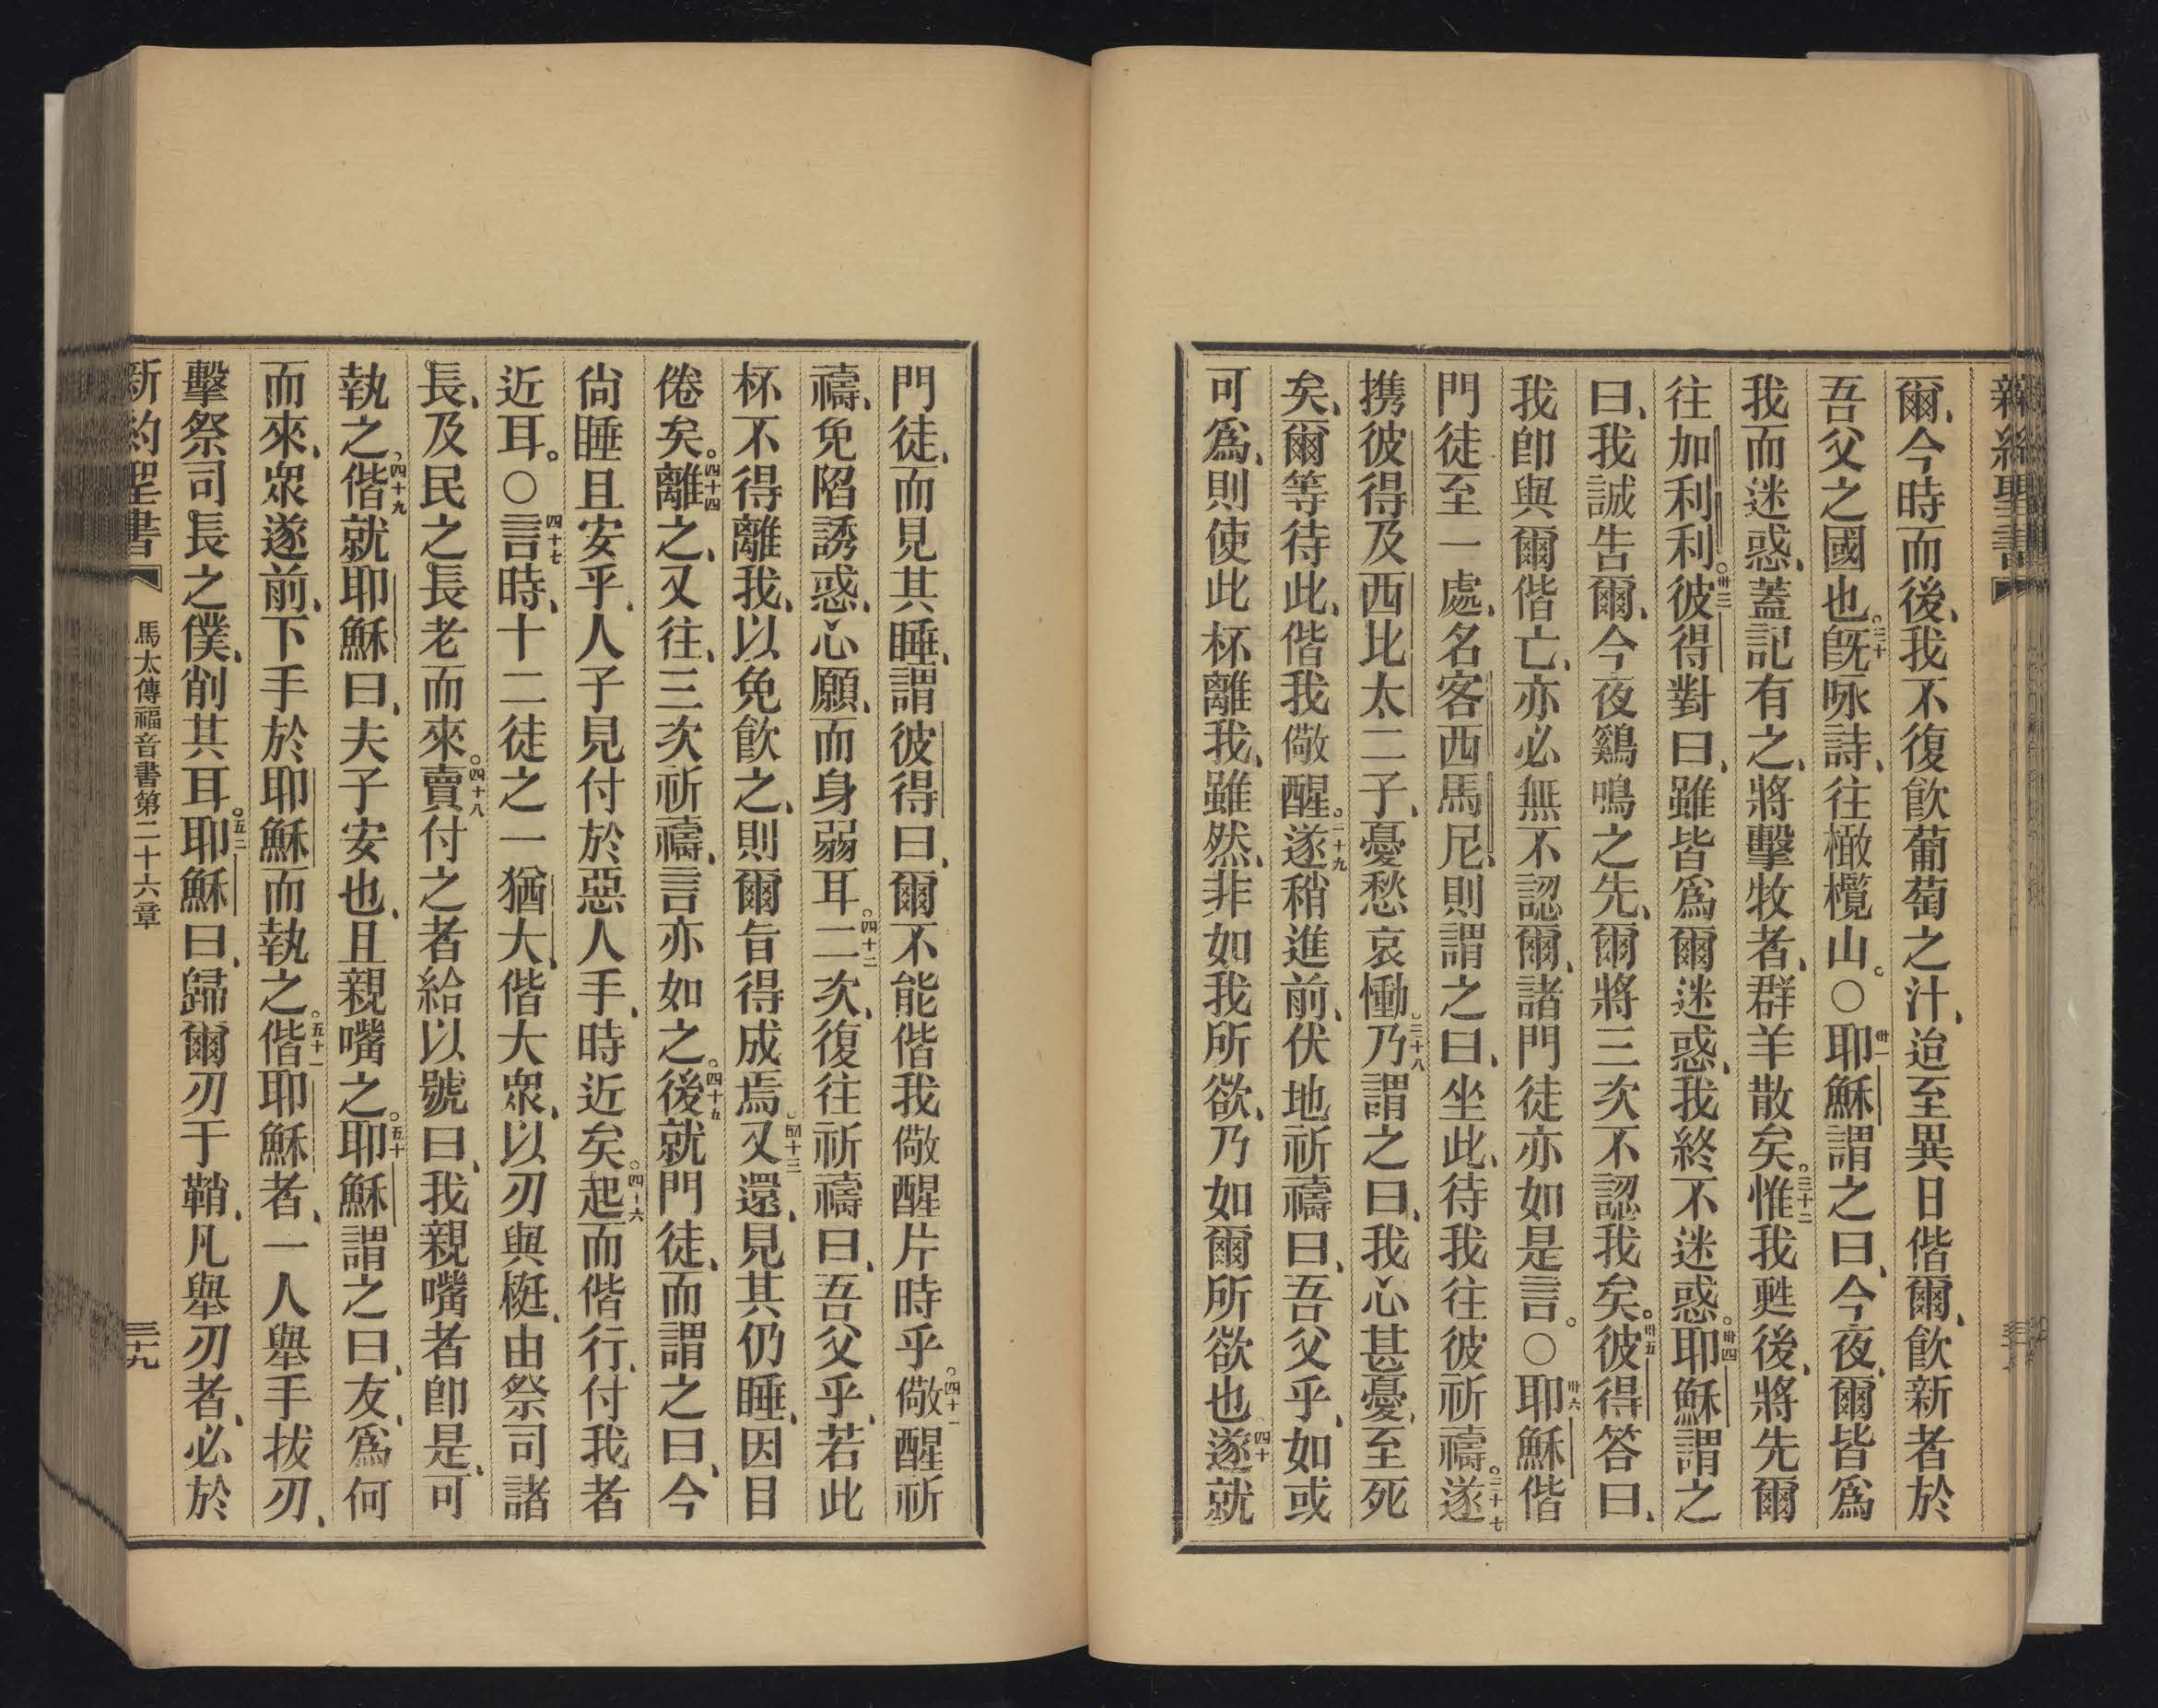 新約聖書
爾、今時而後、我不復飮葡萄之汁、迨至異日偕爾、飮新者於
吾父之國也。三十旣咏詩、往橄欖山。○卅一耶穌謂之曰、今夜、爾皆爲
我而迷惑、蓋記有之、將擊牧者、群羊散矣。三十二惟我甦後、將先爾
往加利利。卅三彼得對曰、雖皆爲爾迷惑、我終不迷惑。卅四耶穌謂之
曰、我誠吿爾、今夜鷄鳴之先、爾將三次不認我矣。卅五彼得答曰、
我卽與爾偕亡、亦必無不認爾、諸門徒亦如是言。○卅六耶穌偕
門徒至一處、名客西馬尼、則謂之曰、坐此、待我往彼祈禱。三十七遂
携彼得及西比太二子、憂愁哀慟。三十八乃謂之曰、我心甚憂、至死
矣、爾等待此、偕我儆醒。三十九遂稍進前、伏地祈禱曰、吾父乎、如或
可爲、則使此杯離我、雖然、非如我所欲、乃如爾所欲也。四十遂就
門徒、而見其睡、謂彼得曰、爾不能偕我儆醒片時乎。四十一儆醒祈
禱、免陷誘惑、心願、而身弱耳。四十二二次、復往祈禱曰、吾父乎、若此
杯不得離我、以免飮之、則爾旨得成焉。四十三又還、見其仍睡、因目
倦矣。四十四離之、又往、三次祈禱、言亦如之。四十五後就門徒、而謂之曰、今
尙睡且安乎、人子見付於惡人手、時近矣。四十六起而偕行、付我者
近耳。○四十七言時、十二徒之一猶大、偕大衆、以刃與梃、由祭司諸
長、及民之長老而來。四十八賣付之者給以號曰、我親嘴者卽是、可
執之。四十九偕就耶穌曰、夫子安也、且親嘴之。五十耶穌謂之曰、友、爲何
而來、衆遂前、下手於耶穌而執之。五十一偕耶穌者、一人舉手拔刃、
擊祭司長之僕、削其耳。五二耶穌曰、歸爾刃于鞘、凡舉刃者、必於
新約聖書 馬太傳福音書第二十六章 三十九